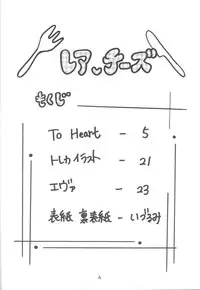 レア♡チーズ
もくじ
To Heart - 5
トレカイラスト - 21
エヴァ - 23
表紙 裏表紙 - いづるみ